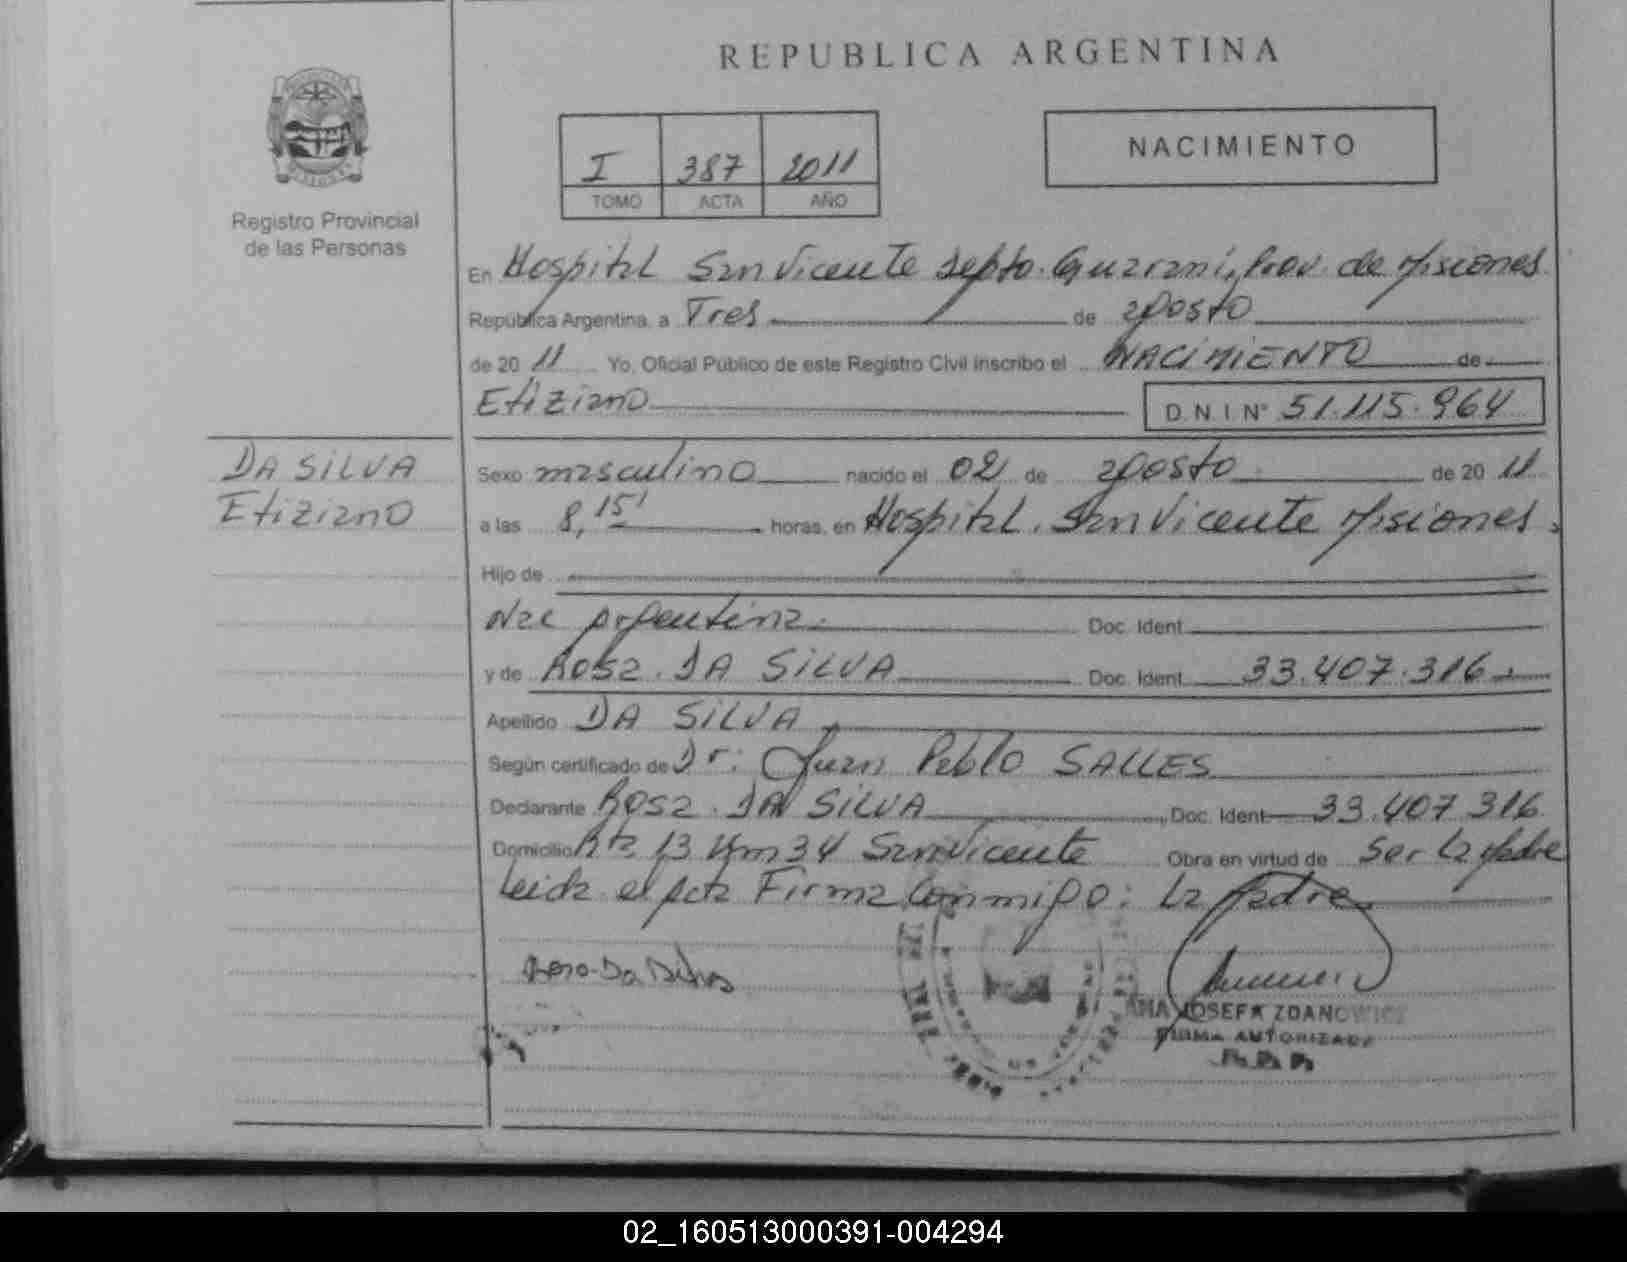 REPUBLICA ARGENTINA
I 387 2011
TOMO ACTA AÑO
NACIMIENTO
Registro Provincial
de las Personas
En Hospital San Vicente depto. Guarani, Prov. de Misiones
República Argentina, a Tres de agosto
de 20 11 Yo, Oficial Público de este Registro Civil inscribo el NACIMIENTO de
Etiziano D.N.I Nº 51.115.964
DA SILVA
Etiziano
Sexo masculino nacido el 02 de agosto de 20 11
a las 8,15' horas, en Hospital. San Vicente Misiones.
Hijo de
Nac Argentina. Doc. Ident.
y de Rosa. DA SILVA Doc. Ident. 33.407.316.
Apellido DA SILVA
Según certificado de Dr: Juan Pablo SALLES
Declarante Rosa. DA SILVA Doc. Ident. 33.407.316
Domicilio Rta 13 Km 34 San Vicente Obra en virtud de Ser La Madre
Leida el Acta Firma Conmigo: La Madre.
Da Silva
ANA JOSEFA ZDANOWICZ
FIRMA AUTORIZADA
02_160513000391-004294